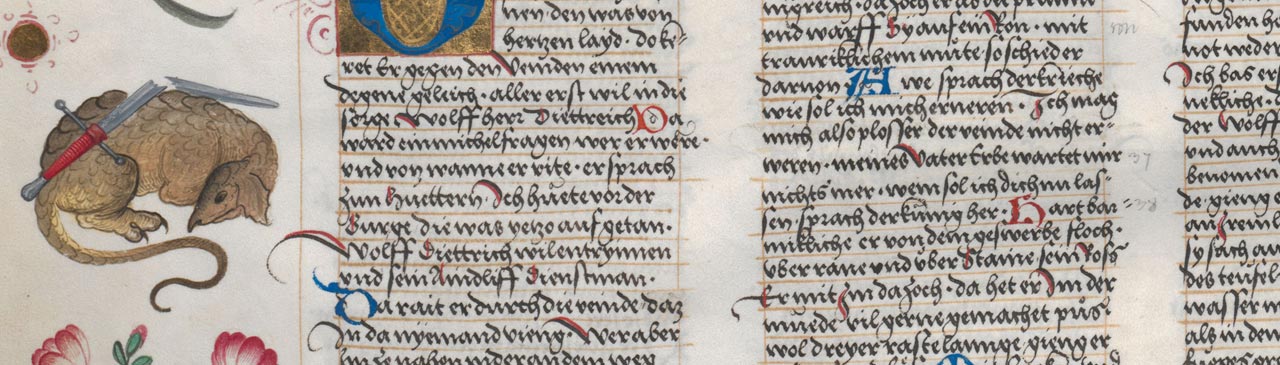 nen den was von
hertzen layd · do ke-
ret Er gegen den Veinden einem
degene geleich · aller erst wil in die
sorge Wolff herr Diettreich Da
ward ein michel fragen wer er were ·
vnd von wanne er rite · er sprach
zun huettern Ich huete vor der
Burge die was yetzo auf getan ·
Wolff Diettrich wil entrynnen
vnd sein Aindliff Dienstman ·
Da rait er durch die veinde · daz
In da nyemand vieng · Wer aber
vnd warff Sy auf sein Ron · mit
traurikhlichem müte so schieder
darvon A we sprach der krieche
wie sol ich mich erneren · Ich mag
mich also plosser der veinde nicht er-
weren · meines Vater Erbe wartet mir
nichts mer · wem sol ich dich nu las-
sen · sprach der künig her · Hart bar-
mikliche er von dem geswerbe floch ·
über rane vnd über Staine sein Ross
Er mit Im da zoch · da het er In der
muede vil gerne gemachet pus
wol dreyer rast lannge gieng er
funden h
not weden
Ich bas er
der Wolff
vnd auch
benomen
de · gieng
an / rem
sy sach au
des teufel
wasser n
als in den